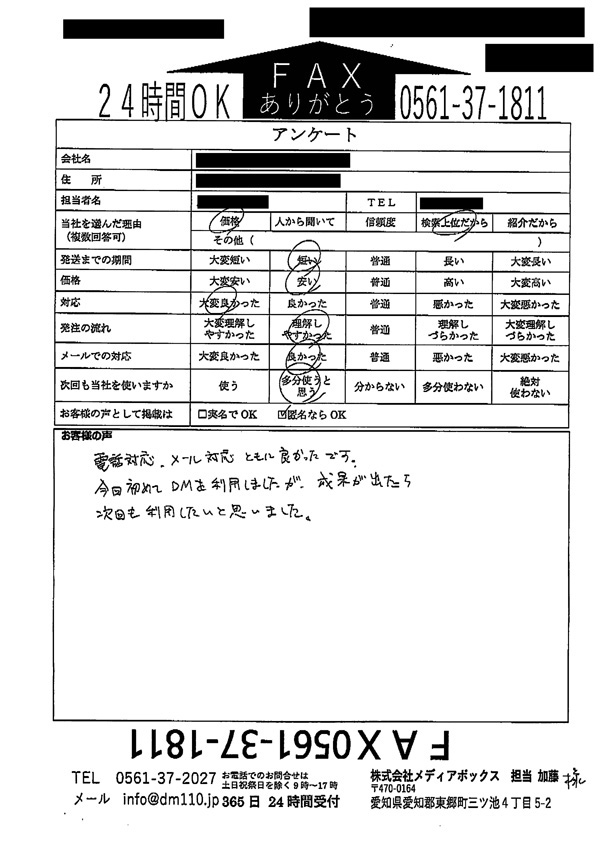 FAX
ありがとう
24時間OK
0561-37-1811
アンケート
会社名
住 所
担当者名 TEL
当社を選んだ理由 価格 人から聞いて 信頼度 検索上位だから 紹介だから
(複数回答可) その他 ( )
発送までの期間 大変短い 短い 普通 長い 大変長い
価格 大変安い 安い 普通 高い 大変高い
対応 大変良かった 良かった 普通 悪かった 大変悪かった
発注の流れ 大変理解しやすかった 理解しやすかった 普通 理解しづらかった 大変理解しづらかった
メールでの対応 大変良かった 良かった 普通 悪かった 大変悪かった
次回も当社を使いますか 使う 多分使うと思う 分からない 多分使わない 絶対使わない
お客様の声として掲載は □実名でOK ☑匿名ならOK
お客様の声
電話対応、メール対応ともに良かったです。
今回初めてDMを利用しましたが、成果が出たら
次回も利用したいと思いました。
FAX0561-37-1811
TEL 0561-37-2027 お電話でのお問合せは土日祝祭日を除く9時~17時
メール info@dm110.jp 365日24時間受付
株式会社メディアボックス 担当 加藤 様
〒470-0164
愛知県愛知郡東郷町三ツ池4丁目5-2